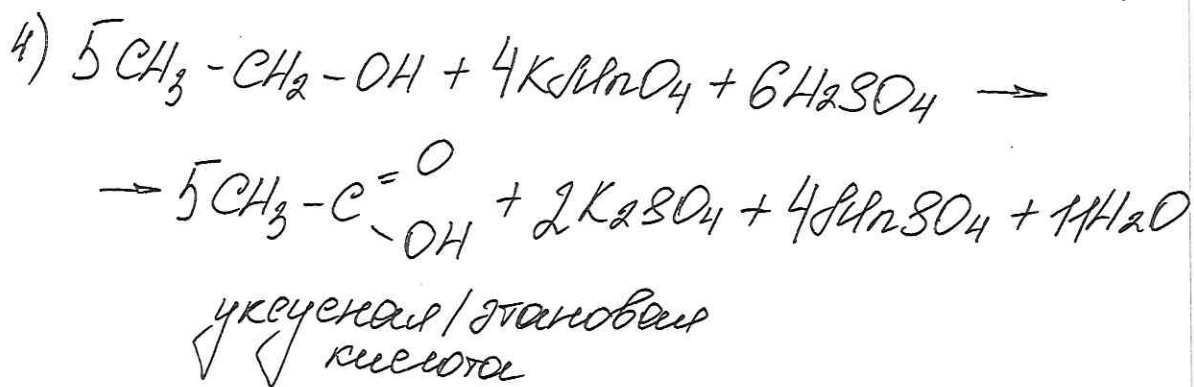 4) 5CH₃-CH₂-OH + 4KMnO₄ + 6H₂SO₄ →
→ 5CH₃-C=O-OH + 2K₂SO₄ + 4MnSO₄ + 11H₂O
уксусная/этановая
кислота